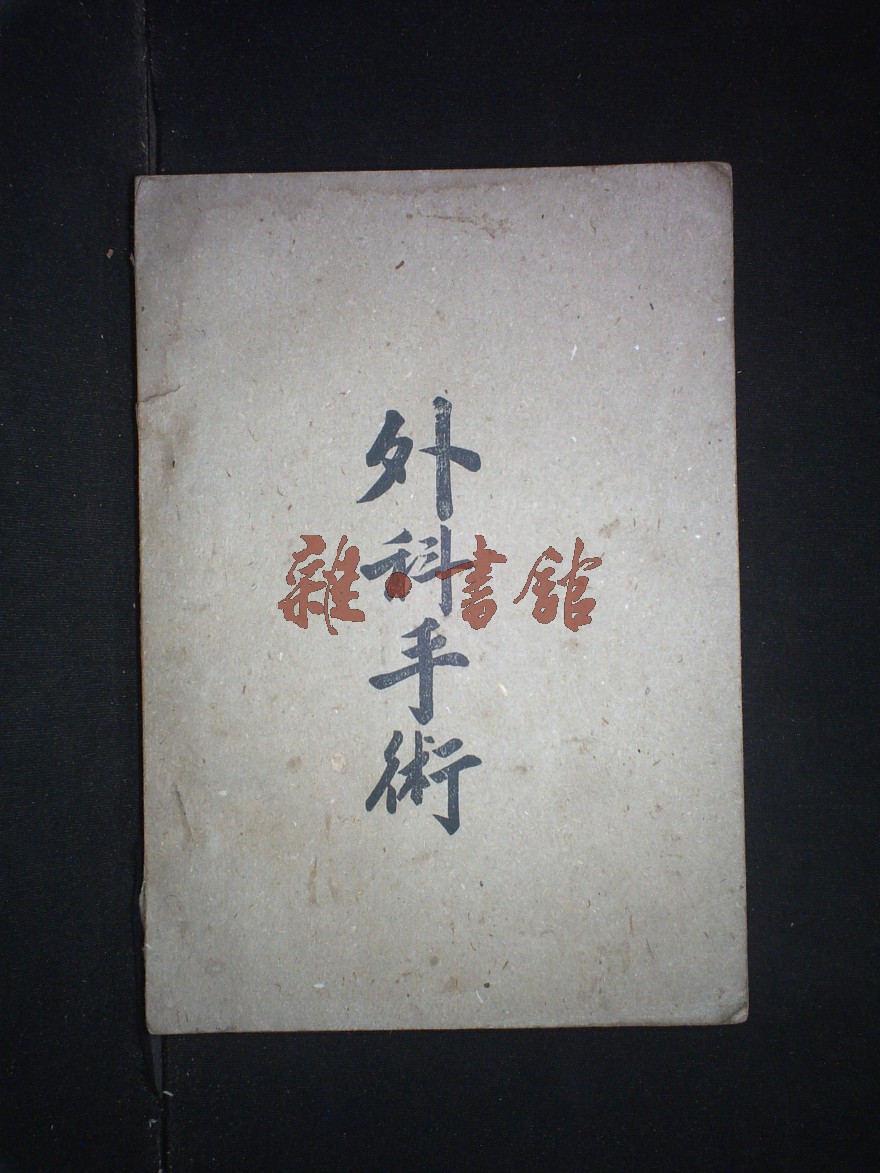 外科手術
雜·書館